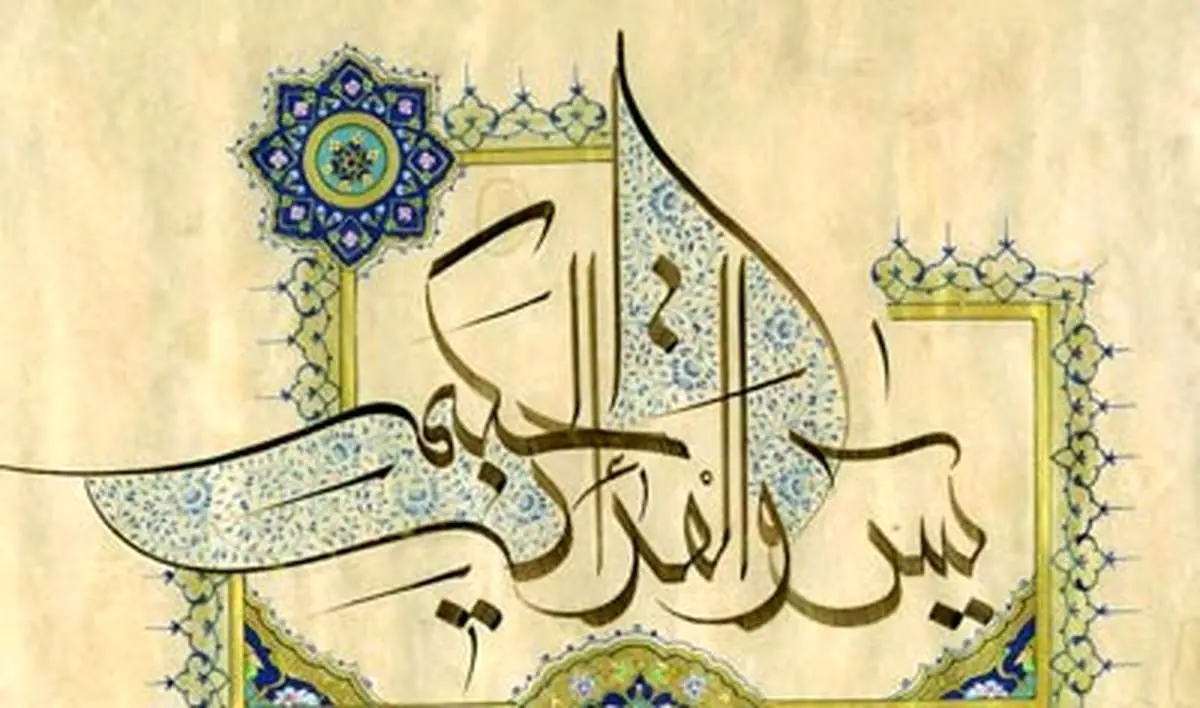 يسٓ والقرآن الحكيم